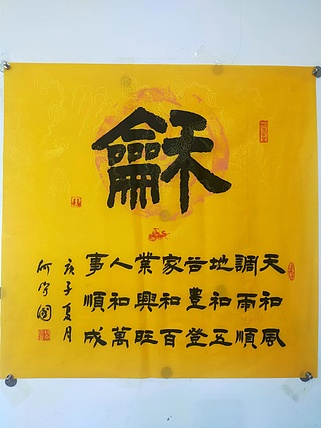 龢
天和風
調雨順
地和五
谷豐登
家和百
業興旺
人和萬
事順成
庚子夏月
何國